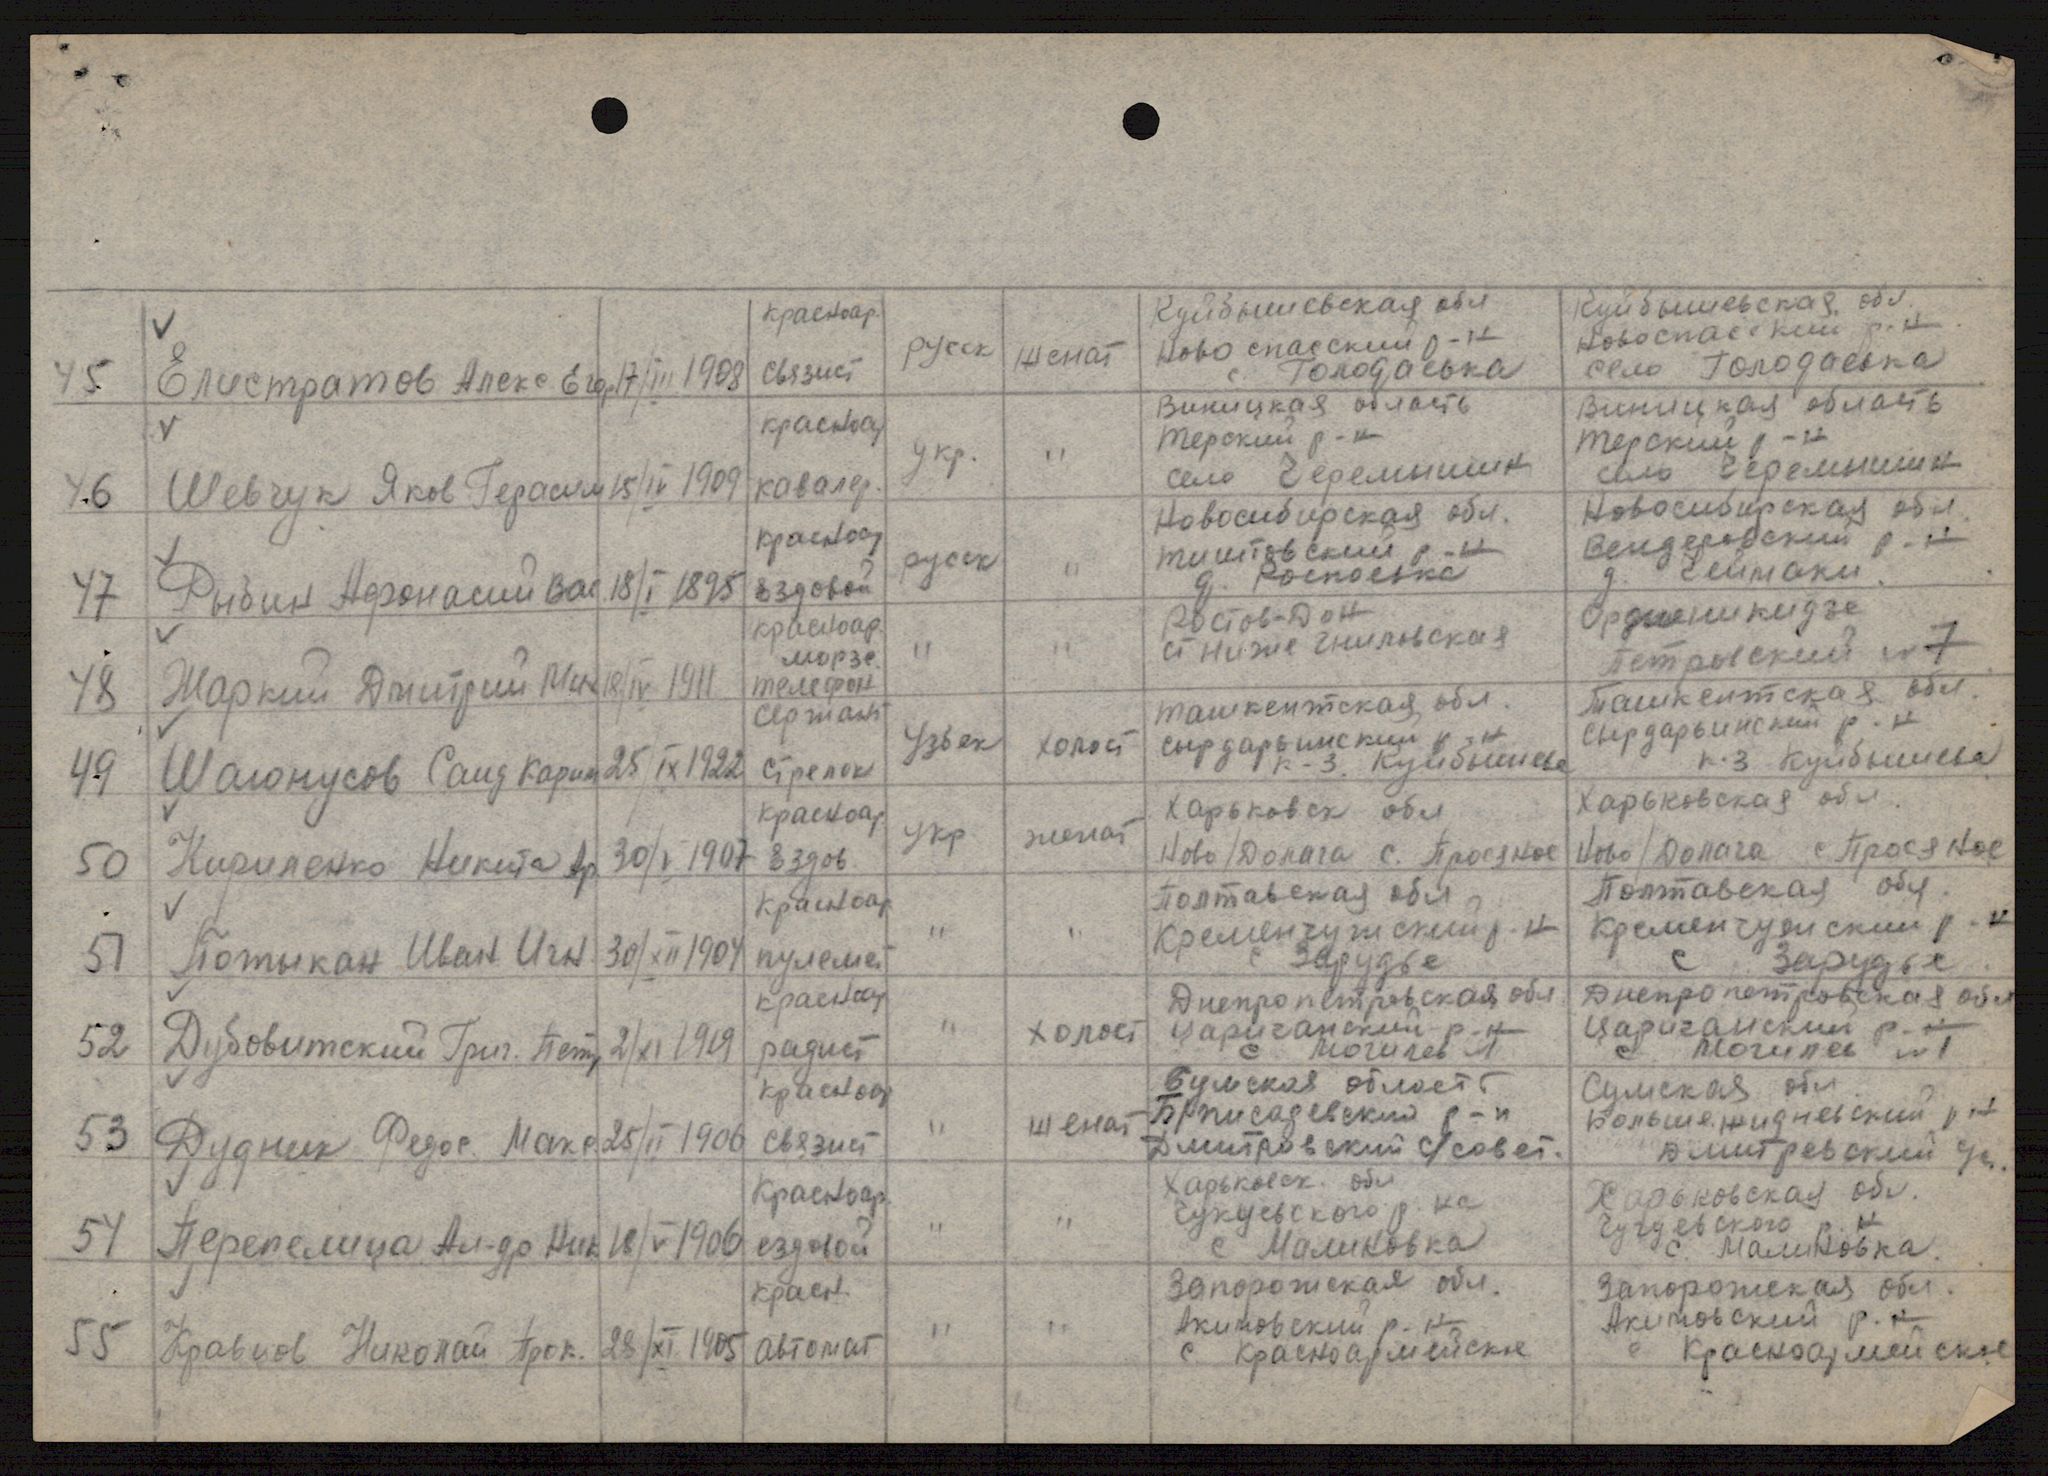 45 ✓ Елистратов Алекс Егор 17/III 1908 красноар. связист русск женат Куйбышевская обл Ново спасский р-н с. Голодаевка Куйбышевская обл. Новоспасский р.н село Голодаевка
46 ✓ Шевчук Яков Герасим 15/IV 1909 красноар кавалер. укр. " Виницкая область Терский р-н село Черемышин Виницкая область Терский р-н село Черемышин
47 ✓ Рыбин Афонасий Вас 18/I 1895 красноар ездовой русск " Новосибирская обл. р-н д. Новосибирская обл. р-н д.
48 ✓ Жаркий Дмитрий Мих 18/IV 1911 красноар. морзе. телефон " " Ростов-Дон ст Ниже Гниловская Ордженикидзе Петровский № 7
49 ✓ Шагонусов Саид Карим 25/IX 1922 сержант стрелок Узбек холост Ташкентская обл. Сырдарьинский р-н к-з. Куйбышева Ташкентская обл. Сырдарьинский р-н к-з Куйбышева
50 ✓ Кириленко Никита Ар 30/V 1907 красноар ездов укр женат Харьковск обл Ново/Долага с. Просяное Харьковская обл. Ново/Долага с Просяное
51 ✓ Потыкан Иван Игн. 30/XII 1904 красноар пулемет " " Полтавская обл Кременчужский р-н с Зарудье Полтавская обл. Кременчужский р-н с Зарудье
52 ✓ Дубовитский Григ. Петр 2/XI 1919 красноар радист " холост Днепропетровская обл Царичанский р-н с Могилев 1 Днепропетровская обл Царичанский р-н с Могилев №1
53 ✓ Дудник Федос. Макс. 25/II 1906 красноар связист " женат Сумская область р-н Дмитровский с/совет. Сумская обл р-н Дмитревский
54 ✓ Перепелица Ал-др Ник 18/V 1906 Красноар. ездовой " " Харьковск. обл Чугуевского р. на с Малиновка Харьковская обл. Чугуевского р. н с. Малиновка.
55 ✓ Кравцов Николай Прок. 28/XI 1905 красн. автомат " " Запорожская обл. Акимовский р-н с Красноармейское Запорожская обл. Акимовский р-н с Красноармейское